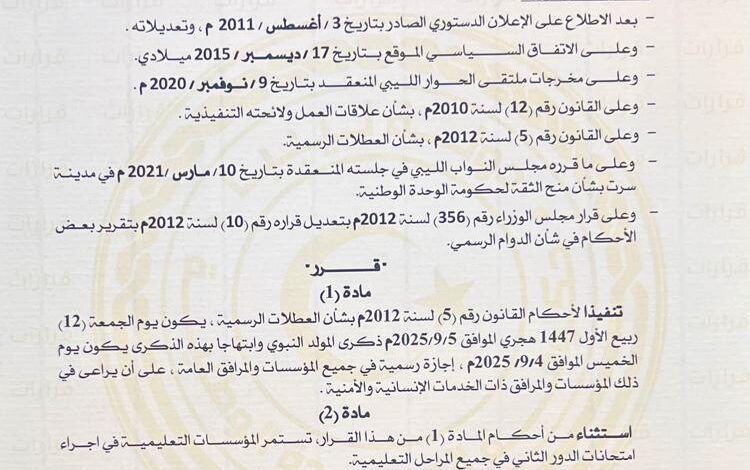 - بعد الاطلاع على الإعلان الدستوري الصادر بتاريخ 3/ أغسطس/ 2011 م، وتعديلاته.
- وعلى الاتفاق السياسي الموقع بتاريخ 17/ ديسمبر/ 2015 ميلادي.
- وعلى مخرجات ملتقى الحوار الليبي المنعقد بتاريخ 9/ نوفمبر/ 2020 م.
- وعلى القانون رقم (12) لسنة 2010م، بشأن علاقات العمل ولائحته التنفيذية.
- وعلى القانون رقم (5) لسنة 2012م، بشأن العطلات الرسمية.
- وعلى ما قرره مجلس النواب الليبي في جلسته المنعقدة بتاريخ 10/ مارس/ 2021 م في مدينة
سرت بشأن منح الثقة لحكومة الوحدة الوطنية.
- وعلى قرار مجلس الوزراء رقم (356) لسنة 2012م بتعديل قراره رقم (10) لسنة 2012م بتقرير بعض
الأحكام في شأن الدوام الرسمي.
- قـــرر -
مادة (1)
تنفيذا لأحكام القانون رقم (5) لسنة 2012م بشأن العطلات الرسمية، يكون يوم الجمعة (12)
ربيع الأول 1447 هجري الموافق 2025/9/5م ذكرى المولد النبوي وابتهاجا بهذه الذكرى يكون يوم
الخميس الموافق 2025/9/4م، إجازة رسمية في جميع المؤسسات والمرافق العامة، على أن يراعى في
ذلك المؤسسات والمرافق ذات الخدمات الإنسانية والأمنية.
مادة (2)
استثناء من أحكام المادة (1) من هذا القرار، تستمر المؤسسات التعليمية في اجراء
امتحانات الدور الثاني في جميع المراحل التعليمية.